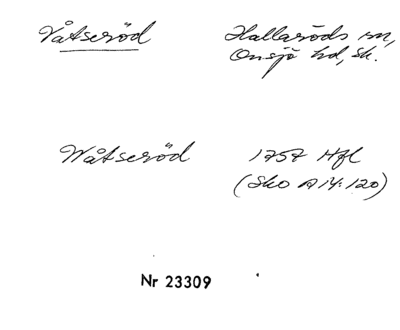 Våtseröd Hallaröds sn,
Onsjö hd, Sk.
Wåtseröd 1757 Hfl
(Sko A14:120)
Nr 23309